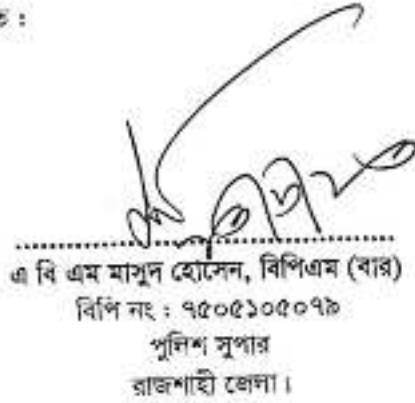 এ বি এম মাসুদ হোসেন, বিপিএম (বার)
বিপি নং : ৭৫০৫১০৫০৭৯
পুলিশ সুপার
রাজশাহী জেলা।